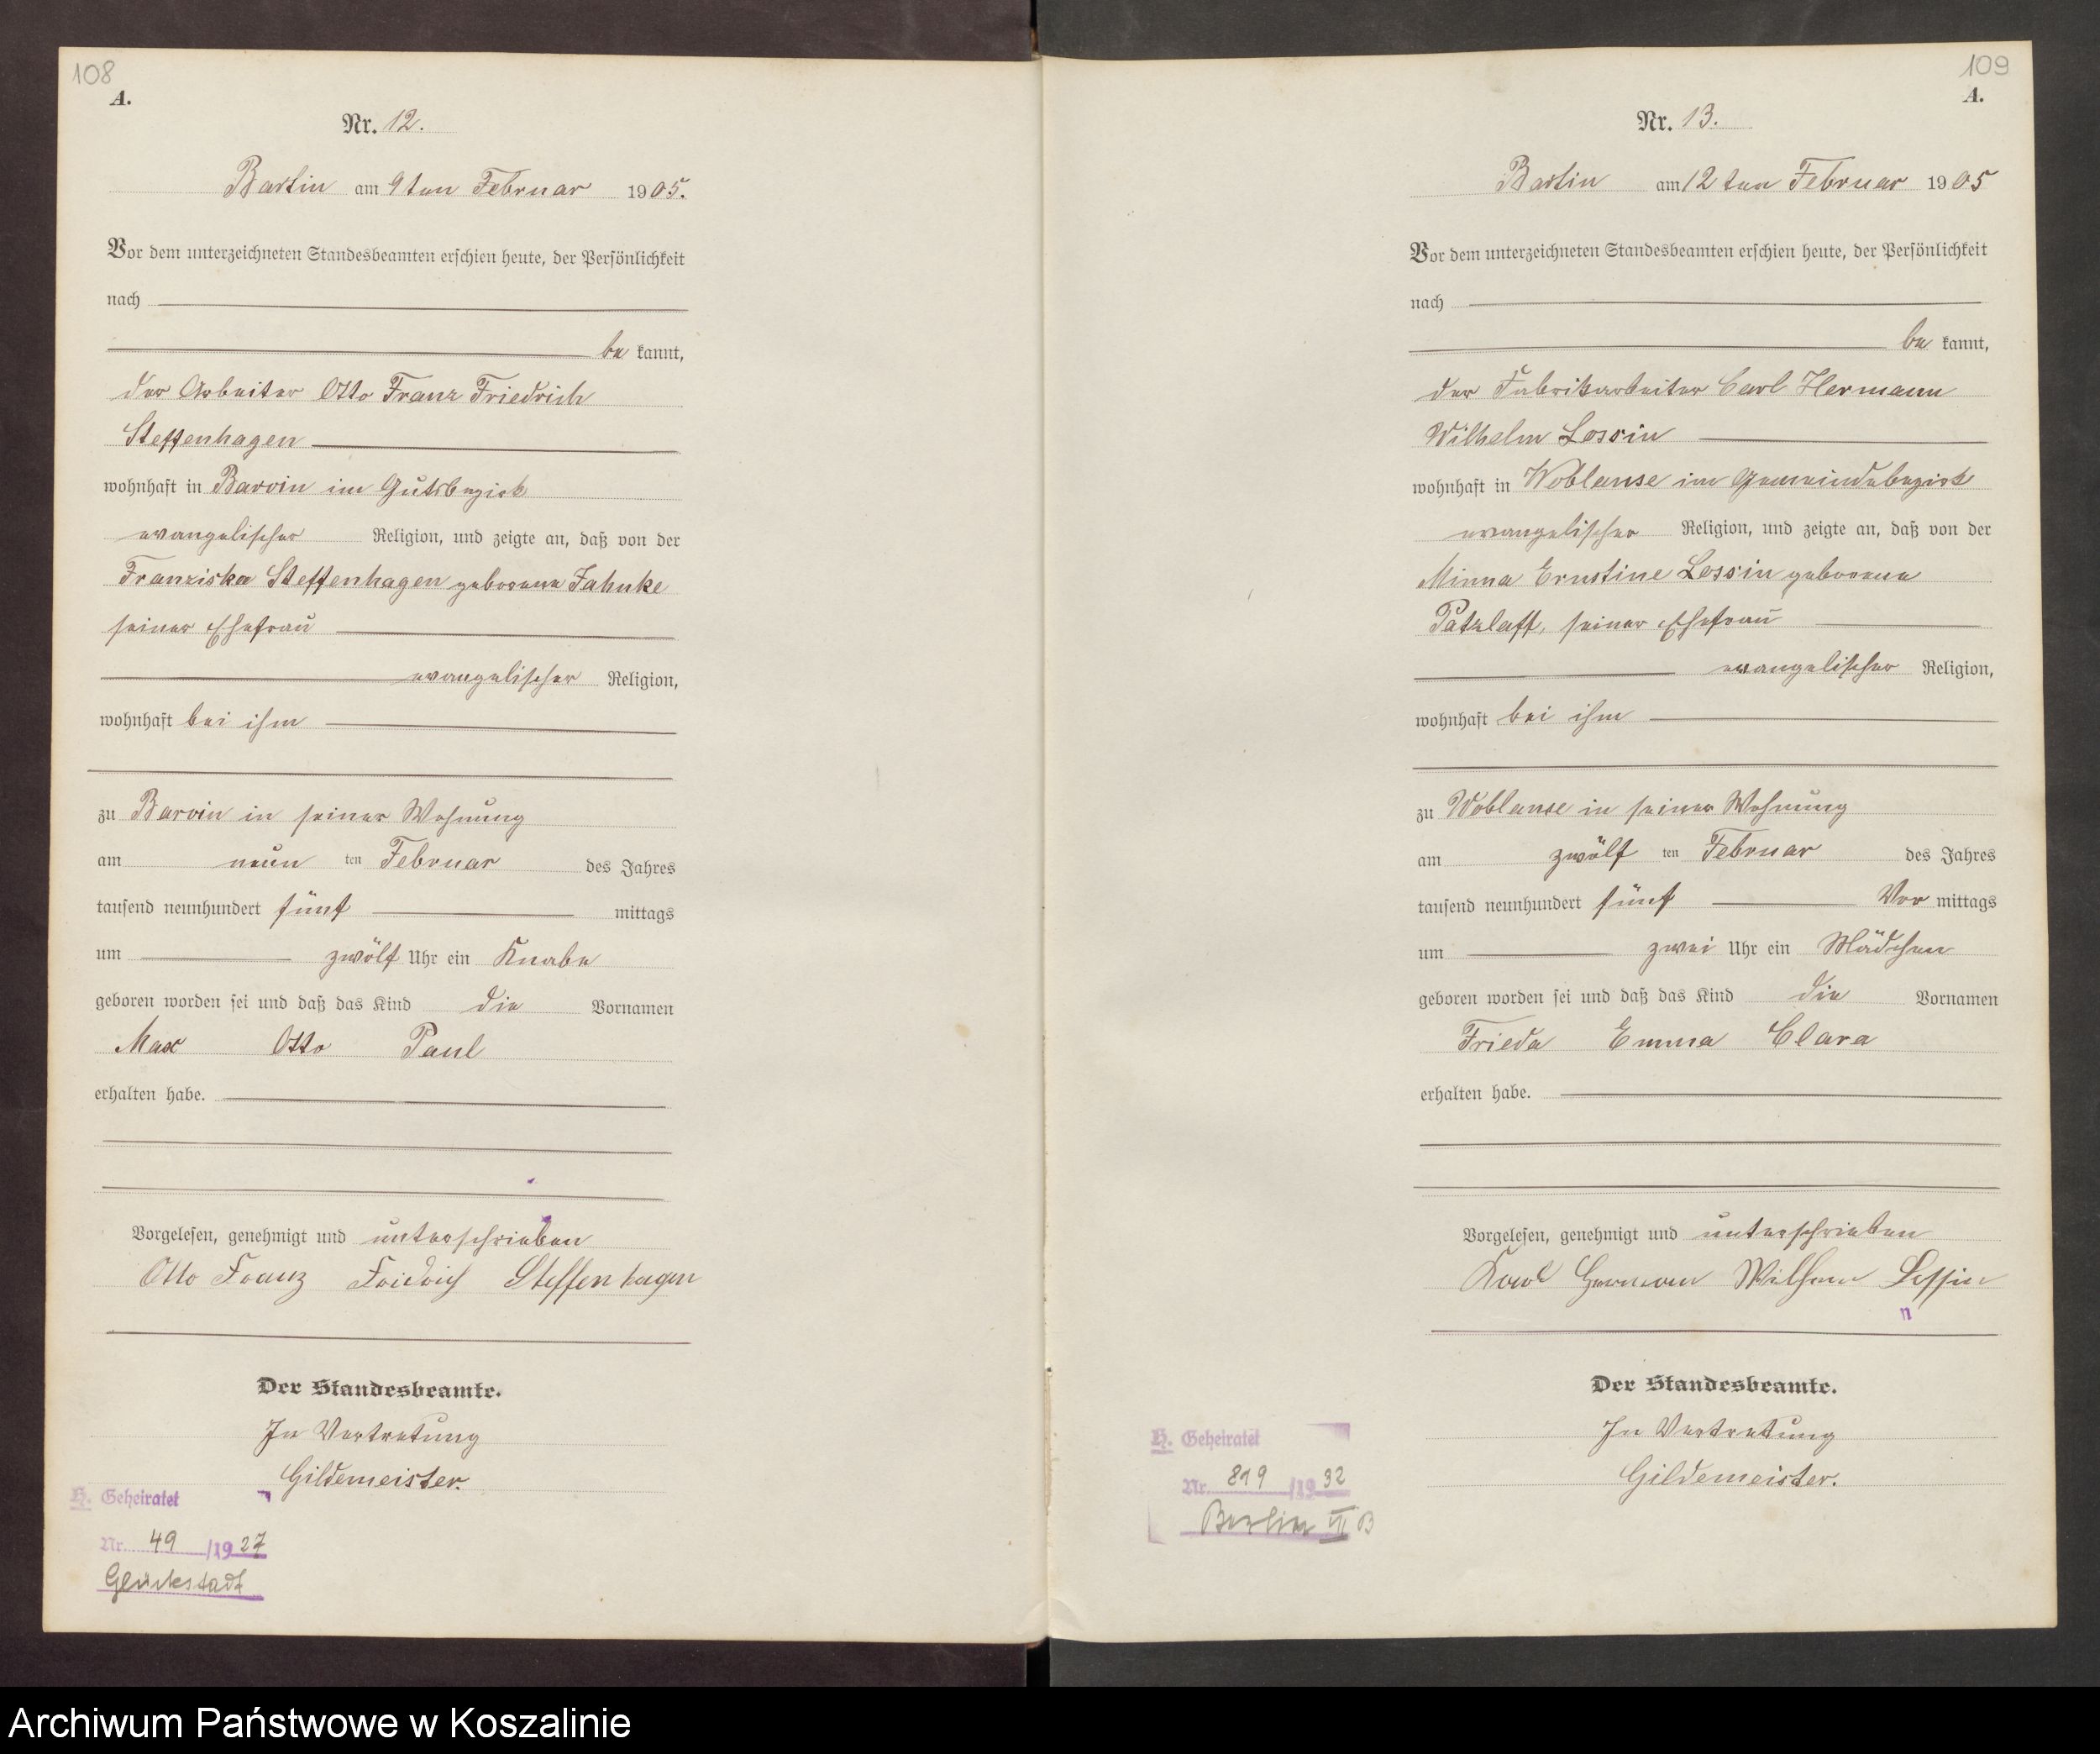 108
A.
Nr. 12.
Bartin am 9ten Februar 1905.
Vor dem unterzeichneten Standesbeamten erschien heute, der Persönlichkeit
nach
be kannt,
der Arbeiter Otto Franz Friedrich
Steffenhagen
wohnhaft in Barvin im Gutsbezirk
evangelischer Religion, und zeigte an, daß von der
Franziska Steffenhagen geborene Jahnke
seiner Ehefrau
evangelischer Religion,
wohnhaft bei ihm
zu Barvin in seiner Wohnung
am neun ten Februar des Jahres
tausend neunhundert fünf mittags
um zwölf Uhr ein Knabe
geboren worden sei und daß das Kind die Vornamen
Max Otto Paul
erhalten habe.
Vorgelesen, genehmigt und unterschrieben
Otto Franz Friedrich Steffenhagen
Der Standesbeamte.
In Vertretung
Gildemeister.
H. Geheiratet
Nr. 49 /1927
Glückstadt
109
A.
Nr. 13.
Bartin am 12ten Februar 1905
Vor dem unterzeichneten Standesbeamten erschien heute, der Persönlichkeit
nach
be kannt,
der Fabrikarbeiter Carl Hermann
Wilhelm Lessin
wohnhaft in Woblanse im Gemeindebezirk
evangelischer Religion, und zeigte an, daß von der
Minna Ernstine Lessin geborene
Patzlaff, seiner Ehefrau
evangelischer Religion,
wohnhaft bei ihm
zu Woblanse in seiner Wohnung
am zwölf ten Februar des Jahres
tausend neunhundert fünf Vor mittags
um zwei Uhr ein Mädchen
geboren worden sei und daß das Kind die Vornamen
Frieda Emma Clara
erhalten habe.
Vorgelesen, genehmigt und unterschrieben
Karl Herman Wilhem Lessin
n
Der Standesbeamte.
In Vertretung
Gildemeister.
H. Geheiratet
Nr. 819 /1932
Berlin VII B
Archiwum Państwowe w Koszalinie